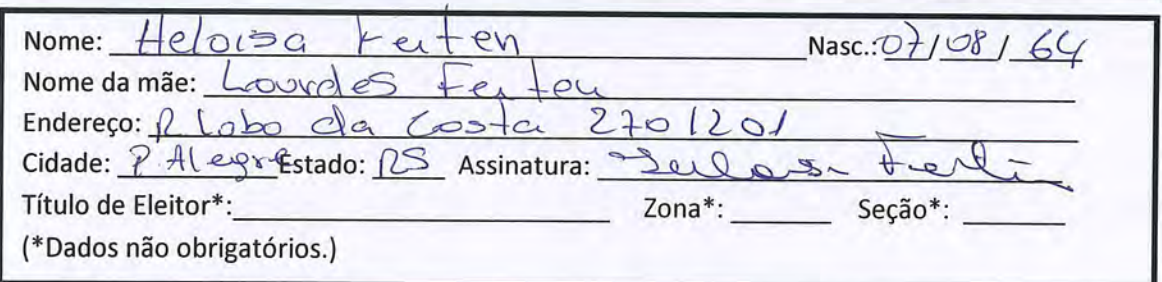 Nome: Heloisa Ferten Nasc.: 07/08/64
Nome da mãe: Lourdes Ferten
Endereço: R Lobo da Costa 270/201
Cidade: P. Alegre Estado: RS Assinatura:
Título de Eleitor*: Zona*: Seção*:
(*Dados não obrigatórios.)